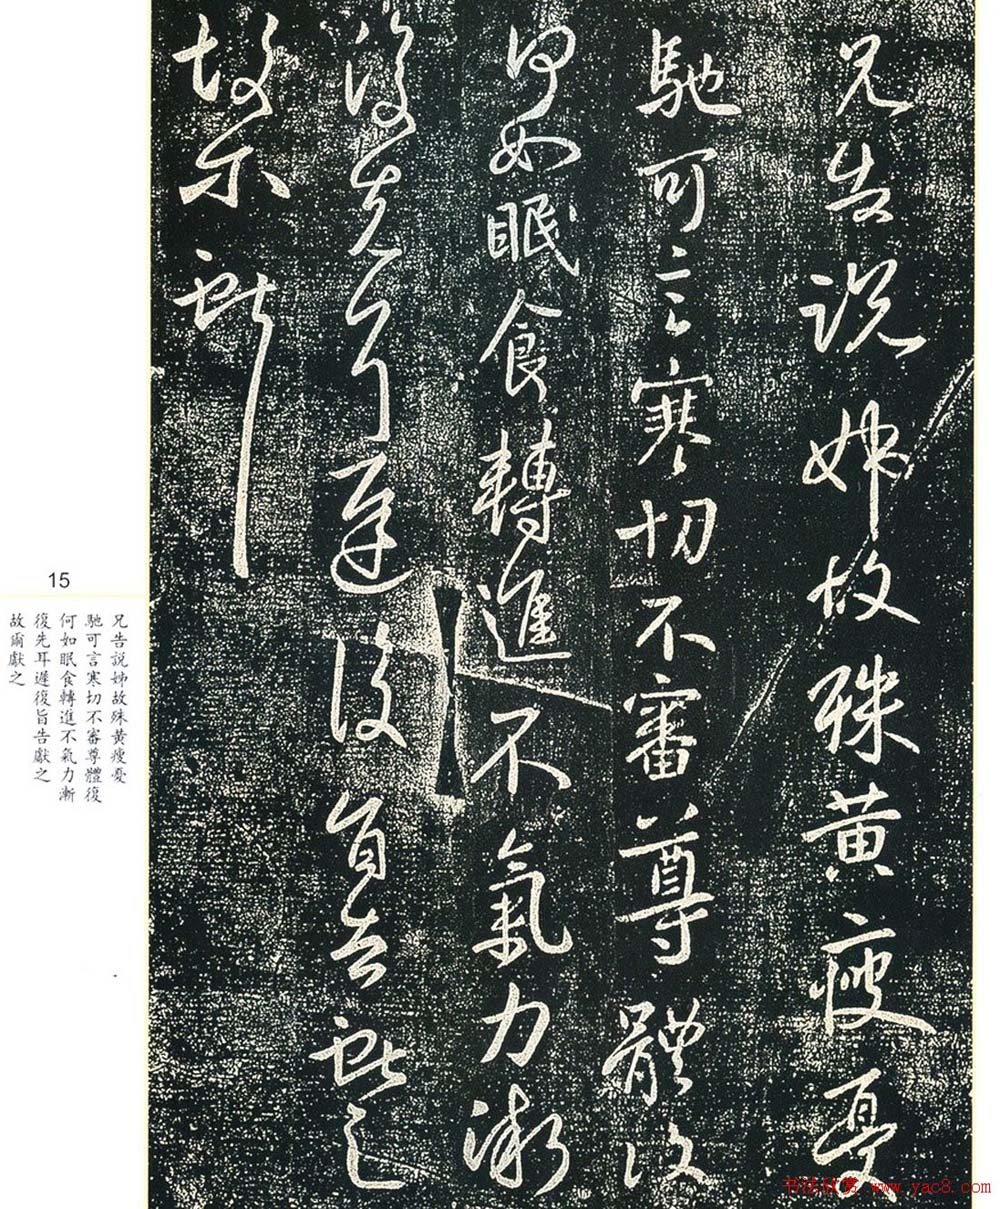 兄告說姊故殊黃瘦憂
馳可言寒切不審尊體復
何如眠食轉進不氣力漸
復先耳遲復旨告獻之
故尔獻之
15
兄告說姊故殊黃瘦憂
馳可言寒切不審尊體復
何如眠食轉進不氣力漸
復先耳遲復旨告獻之
故爾獻之
书法欣赏 www.yac8.com